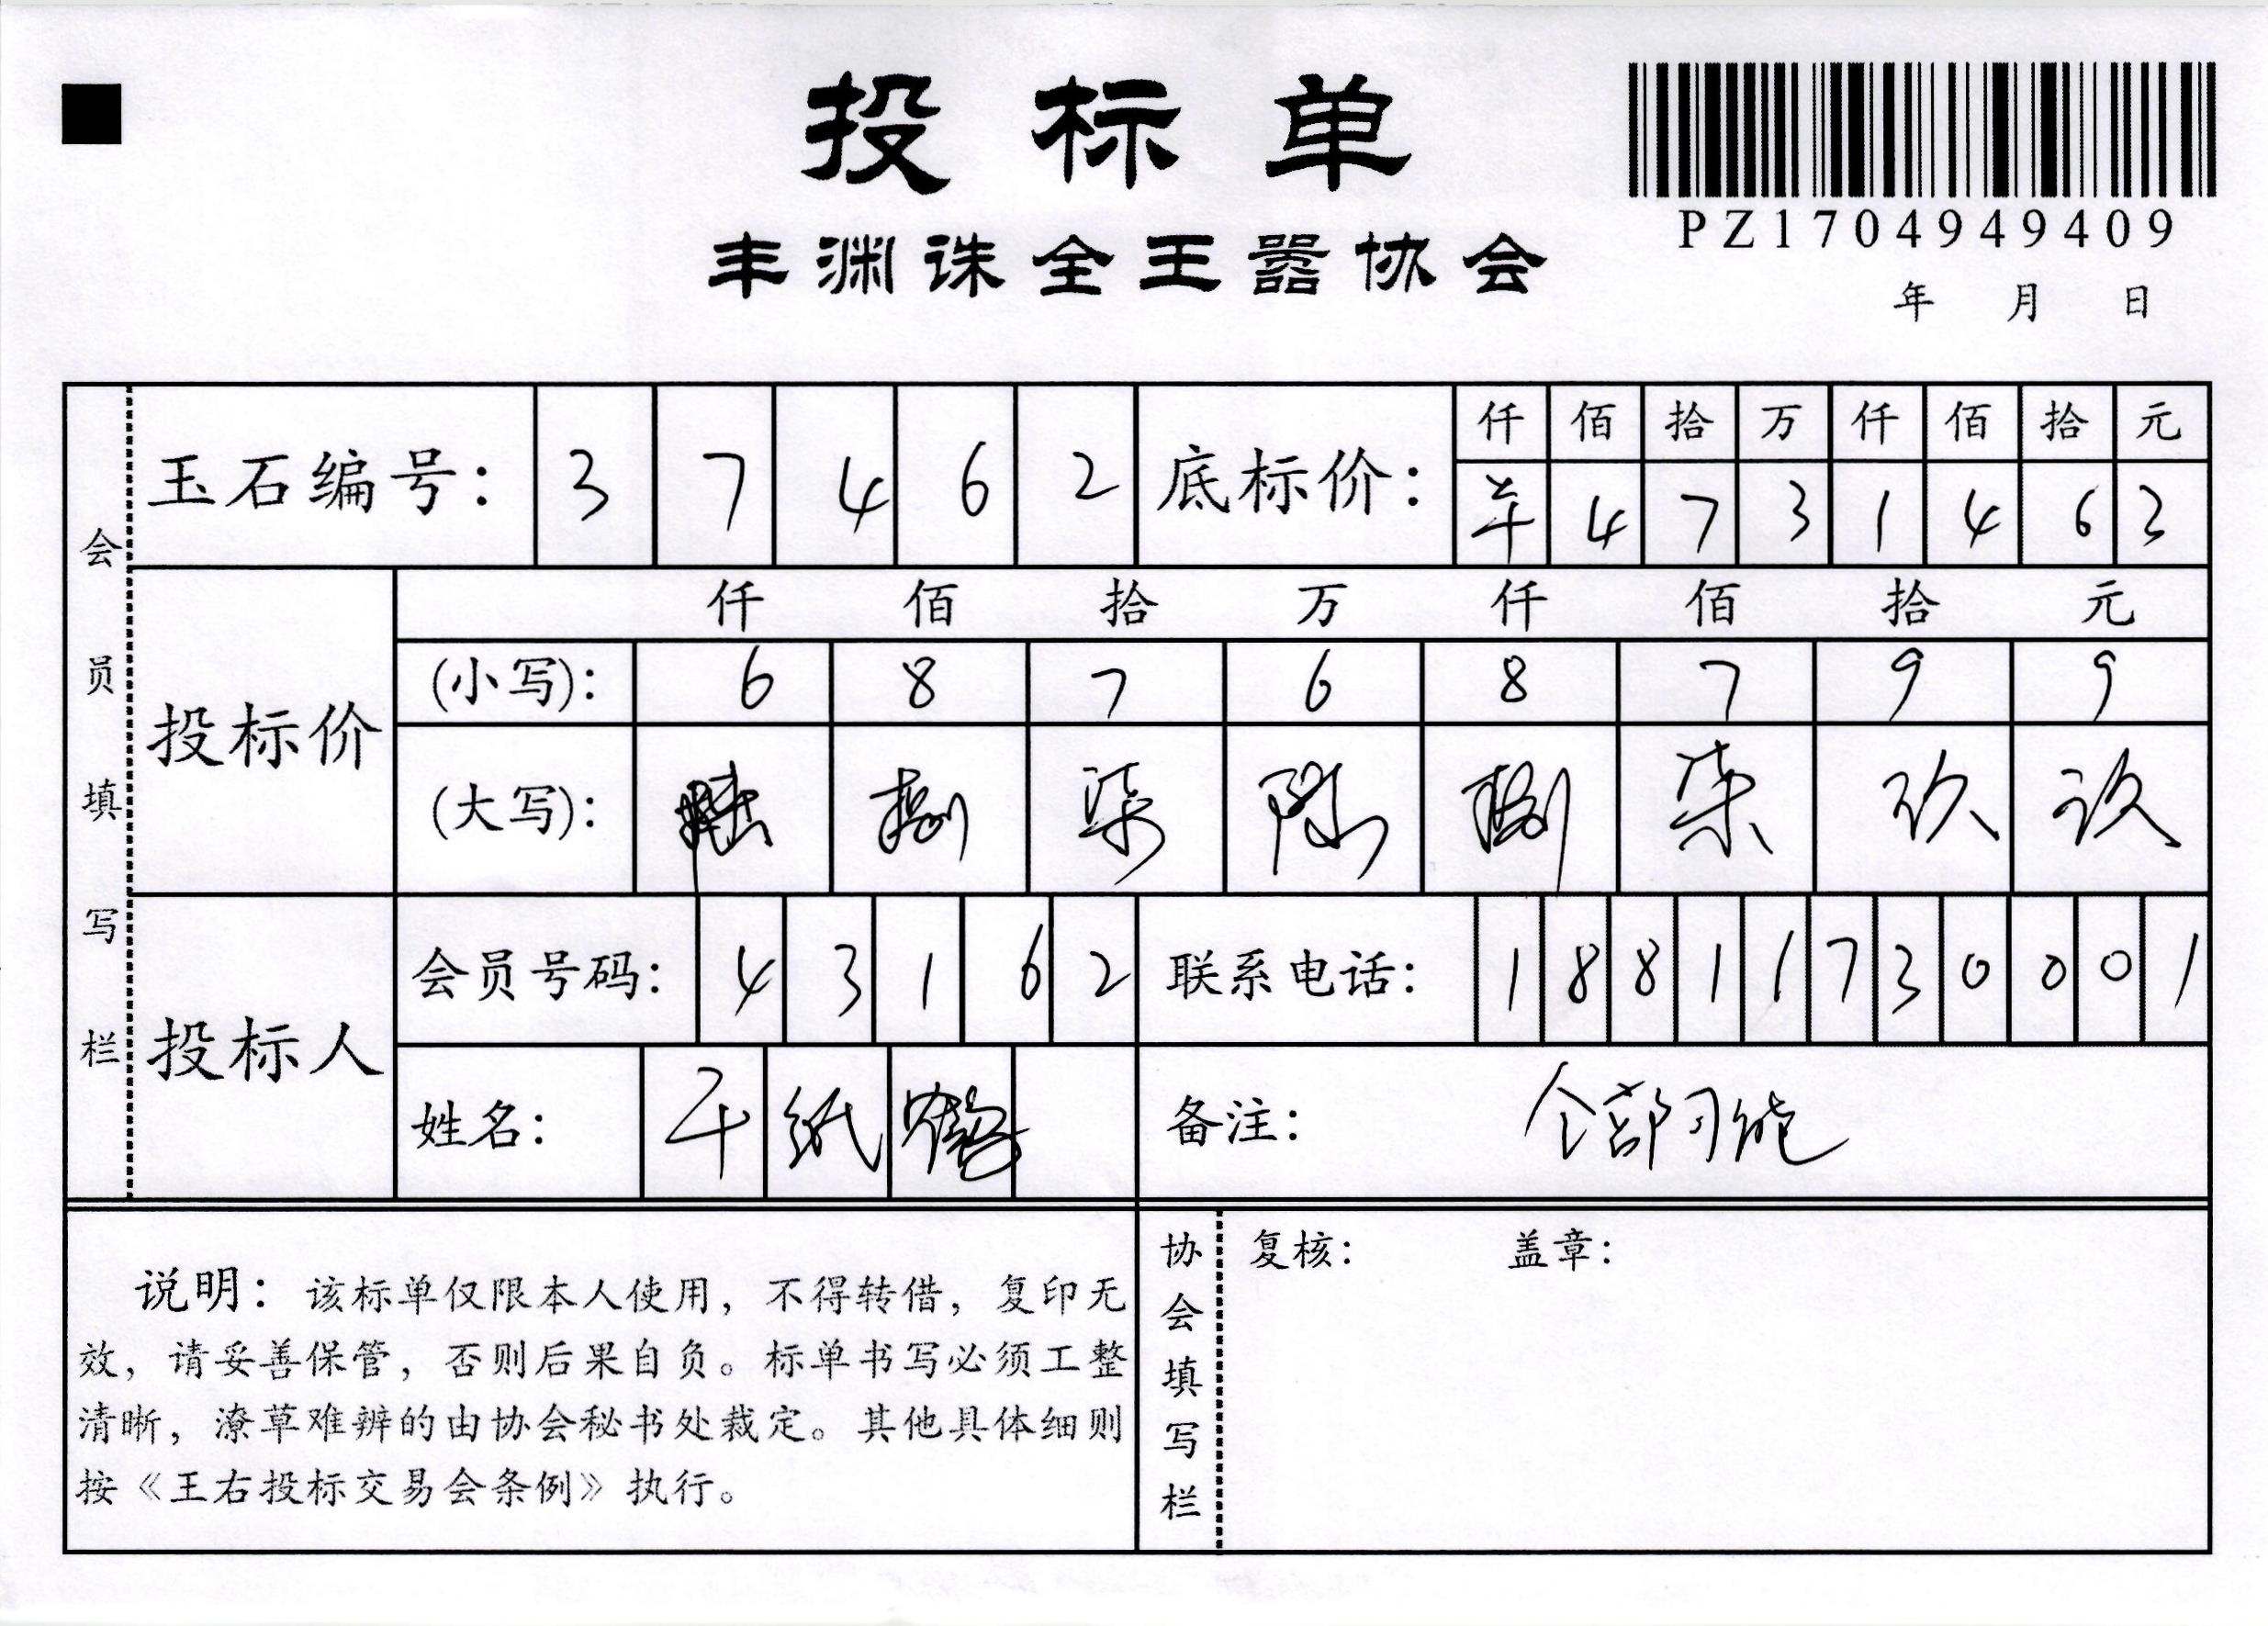 投标单
PZ1704949409
丰渊诛全王嚣协会
年 月 日
会员填写栏
玉石编号： 3 7 4 6 2 底标价：
仟 佰 拾 万 仟 佰 拾 元
4 7 3 1 4 6 2
投标价
仟 佰 拾 万 仟 佰 拾 元
(小写)： 6 8 7 6 8 7 9 9
(大写)： 陆 捌 柒 陆 捌 柒 玖 玖
投标人
会员号码： 4 3 1 6 2 联系电话： 1 8 8 1 1 7 3 0 0 0 1
姓名： 千 纸 鹤 备注： 全部可能
说明：该标单仅限本人使用，不得转借，复印无
效，请妥善保管，否则后果自负。标单书写必须工整
清晰，潦草难辨的由协会秘书处裁定。其他具体细则
按《王右投标交易会条例》执行。
协会填写栏
复核： 盖章：